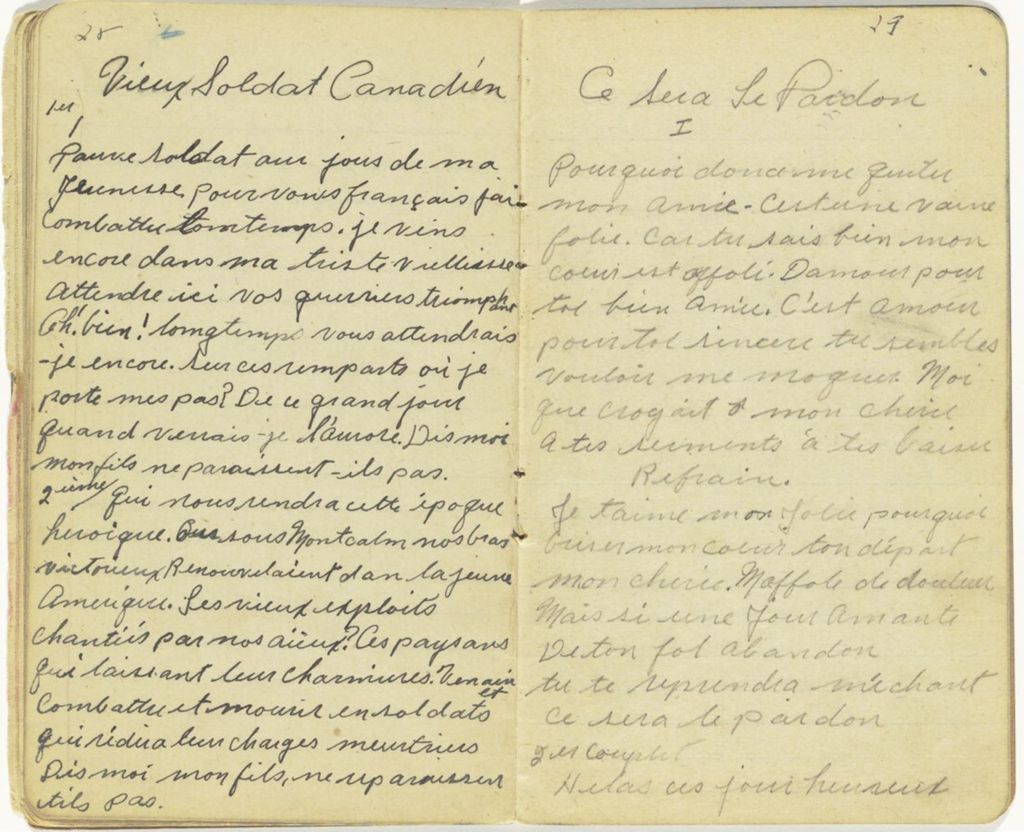 28
Vieux Soldat Canadien
1er
Pauvre soldat aux jous de ma
Jeunesse. pour vous français jai
Combattu lontemps. je viens
encore dans ma triste viellesse
Attendre ici vos guerriers triomphant
Ah! bien! longtemps vous attendrais
-je encore. sur ces remparts où je
porte mes pas? De ce grand jour
quand verrais-je l'aurore. Dis moi
mon fils ne paraissent-ils pas.
2ième Qui nous rendra cette époque
heroique. sous Montcalm nos bras
victorieux Renouvelaient dan la jeune
Amerique. Ses vieux exploits
chantés par nos aïeux? Ces paysans
qui laissant leur charmieres. Venain
Combattu et mourir en soldats et
qui rédira leur charges meurtriers
Dis moi mon fils, ne reparaissen
tils pas.
29
Ce Sera Le Pardon
I
Pourquoi donc me quiter
mon amie. Cest une vaine
folie. Car tu sais bien mon
coeur est affoli. Damour pour
toi bien Amie. C'est amour
pour toi sincere tu sembles
vouloir me moquer. Moi
que croyait a mon cherie
A tes serments à tes baiser
Refrain.
Je t'aime mon Jolie pourquoi
briser mon coeur ton départ
mon cherie. Maffole de douleur
Mais si une Jour Amante
De ton fol abandon
tu te reprendra méchant
ce sera le pardon
2er Couplet
Helas ces jour heureux